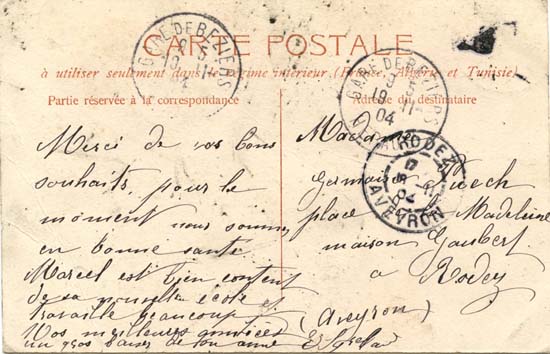 CARTE POSTALE
à utiliser seulement dans le régime intérieur (France, Algérie et Tunisie)
Partie réservée à la correspondance
Adresse du destinataire
GARE DE BEZIERS
GARE DE BEZIERS
04
RODEZ
AVEYRON
Merci de vos bons
souhaits, pour le
moment nous sommes
en bonne santé
Marcel est bien content
de sa nouvelle école et
travaille beaucoup
Vos meilleurs amies
un gros baiser de ton amie
Madame
Germaine Puech
place Madeleine
maison Gaubert
à Rodez
(Aveyron)